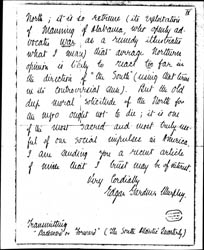 North; it is so extreme its exploitation
of Manning of Alabama, who openly ad-
vocates war, as a remedy illustrates
what I mean) that average Northern
opinion is likely to react too far in
the direction of "the South" (using that term
in its controversial sense). But the old
deep moral solicitude of the North for
the negro ought not to die; it is one
of the most sacred and most truly use-
ful of our social impulses in America.
I am sending you a recent article
of mine that I trust may be of interest.
Very Cordially
Edgar Gardner Murphy.
Transmitting
"Backward or Forward" (The South Atlantic Quarterly)